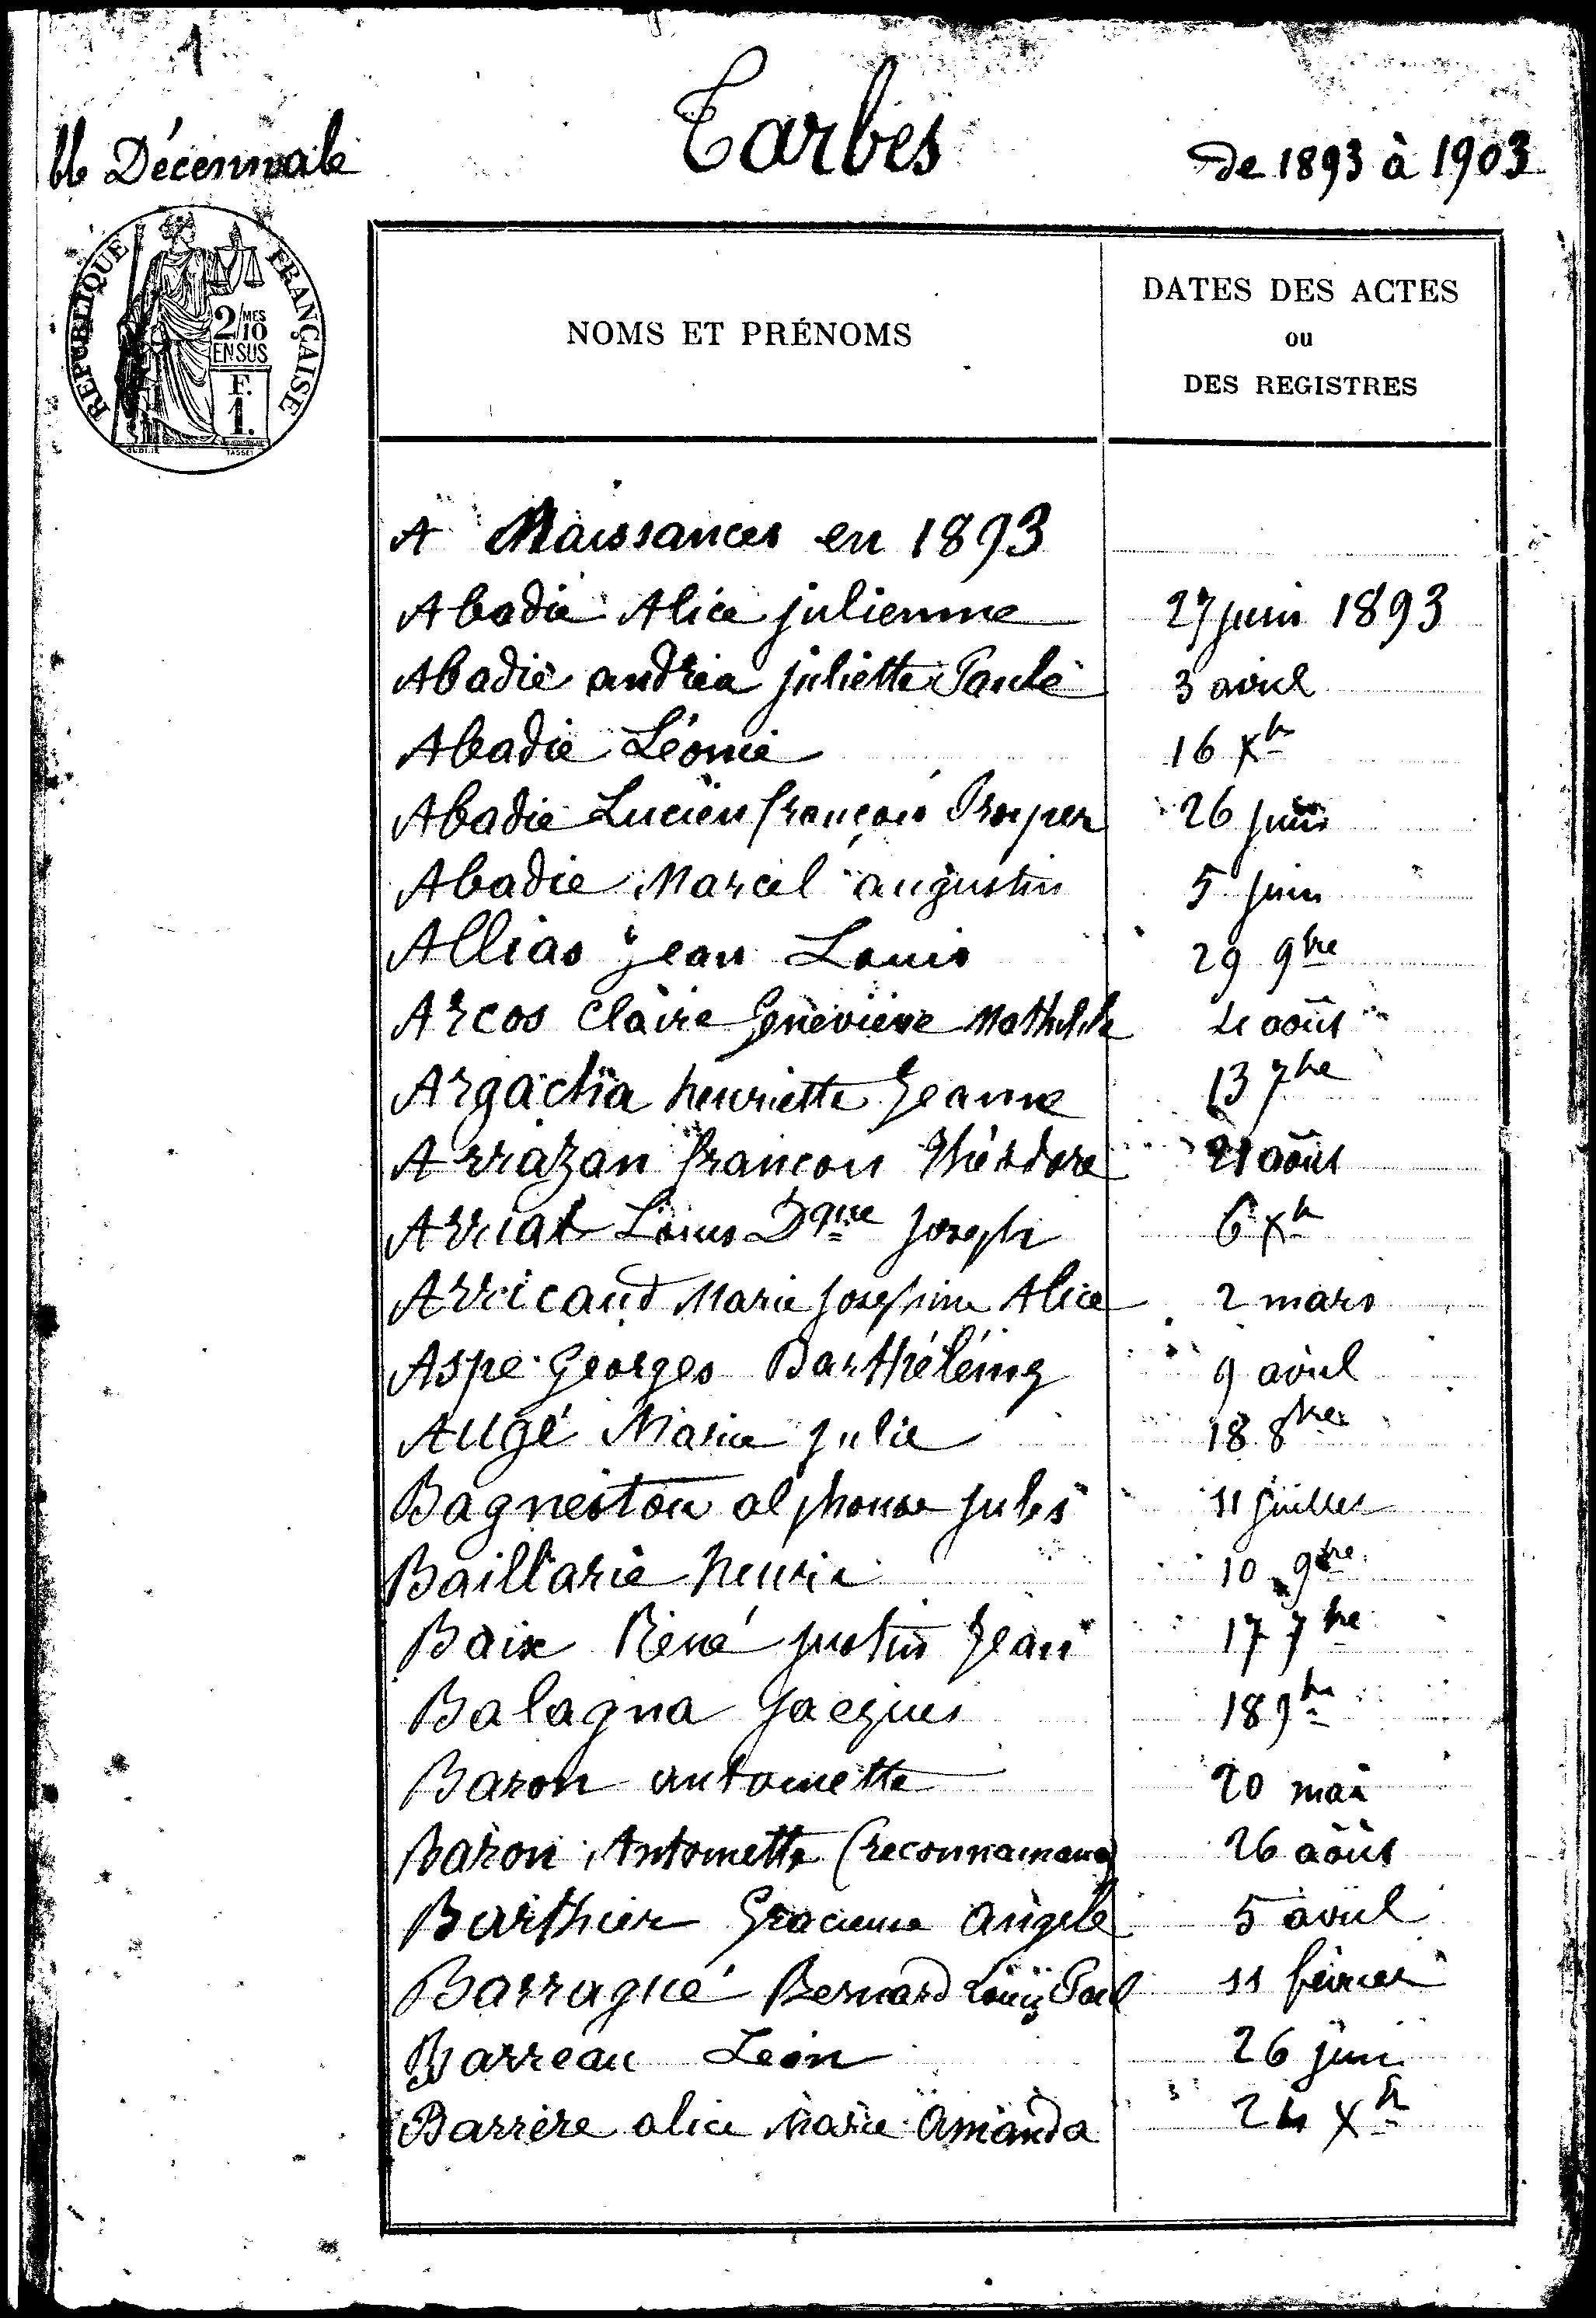 1
Tarbes
tle Décennale
de 1893 à 1903
REPUBLIQUE FRANÇAISE
2/10 MES
EN SUS
F.
1.
TASSET
NOMS ET PRÉNOMS
DATES DES ACTES
ou
DES REGISTRES
A Naissances en 1893
Abadie Alice julienne 27 juin 1893
Abadie andréa juliette Paule 3 avril
Abadie Léonie 16 Xbre
Abadie Lucien françois Prosper 26 juin
Abadie Marcel augustin 5 juin
Allias jean Louis 29 9bre
Arcos Claire Geneviève Mathilde 4 août
Argacha henriette Jeanne 13 7bre
Arrazan françois Théodore 21 août
Arriat Louis Dque Joseph 6 Xbre
Arricaud Marie Josephine Alice 2 mars
Aspe Georges Barthélémy 9 avril
Augé Marie Julie 18 8bre
Bagneston alphonse Jules 11 juillet
Baillarie henri 10 9bre
Baix René justin Jean 17 7bre
Balagna Jacques 18 9bre
Baron antoinette 20 mai
Baron Antoinette (reconnaissance) 26 août
Barthier Gracieuse angèle 5 avril
Barragué Bernard Louis Paul 11 février
Barreau Léon 26 juin
Barrère alice Marie Amanda 24 Xbre